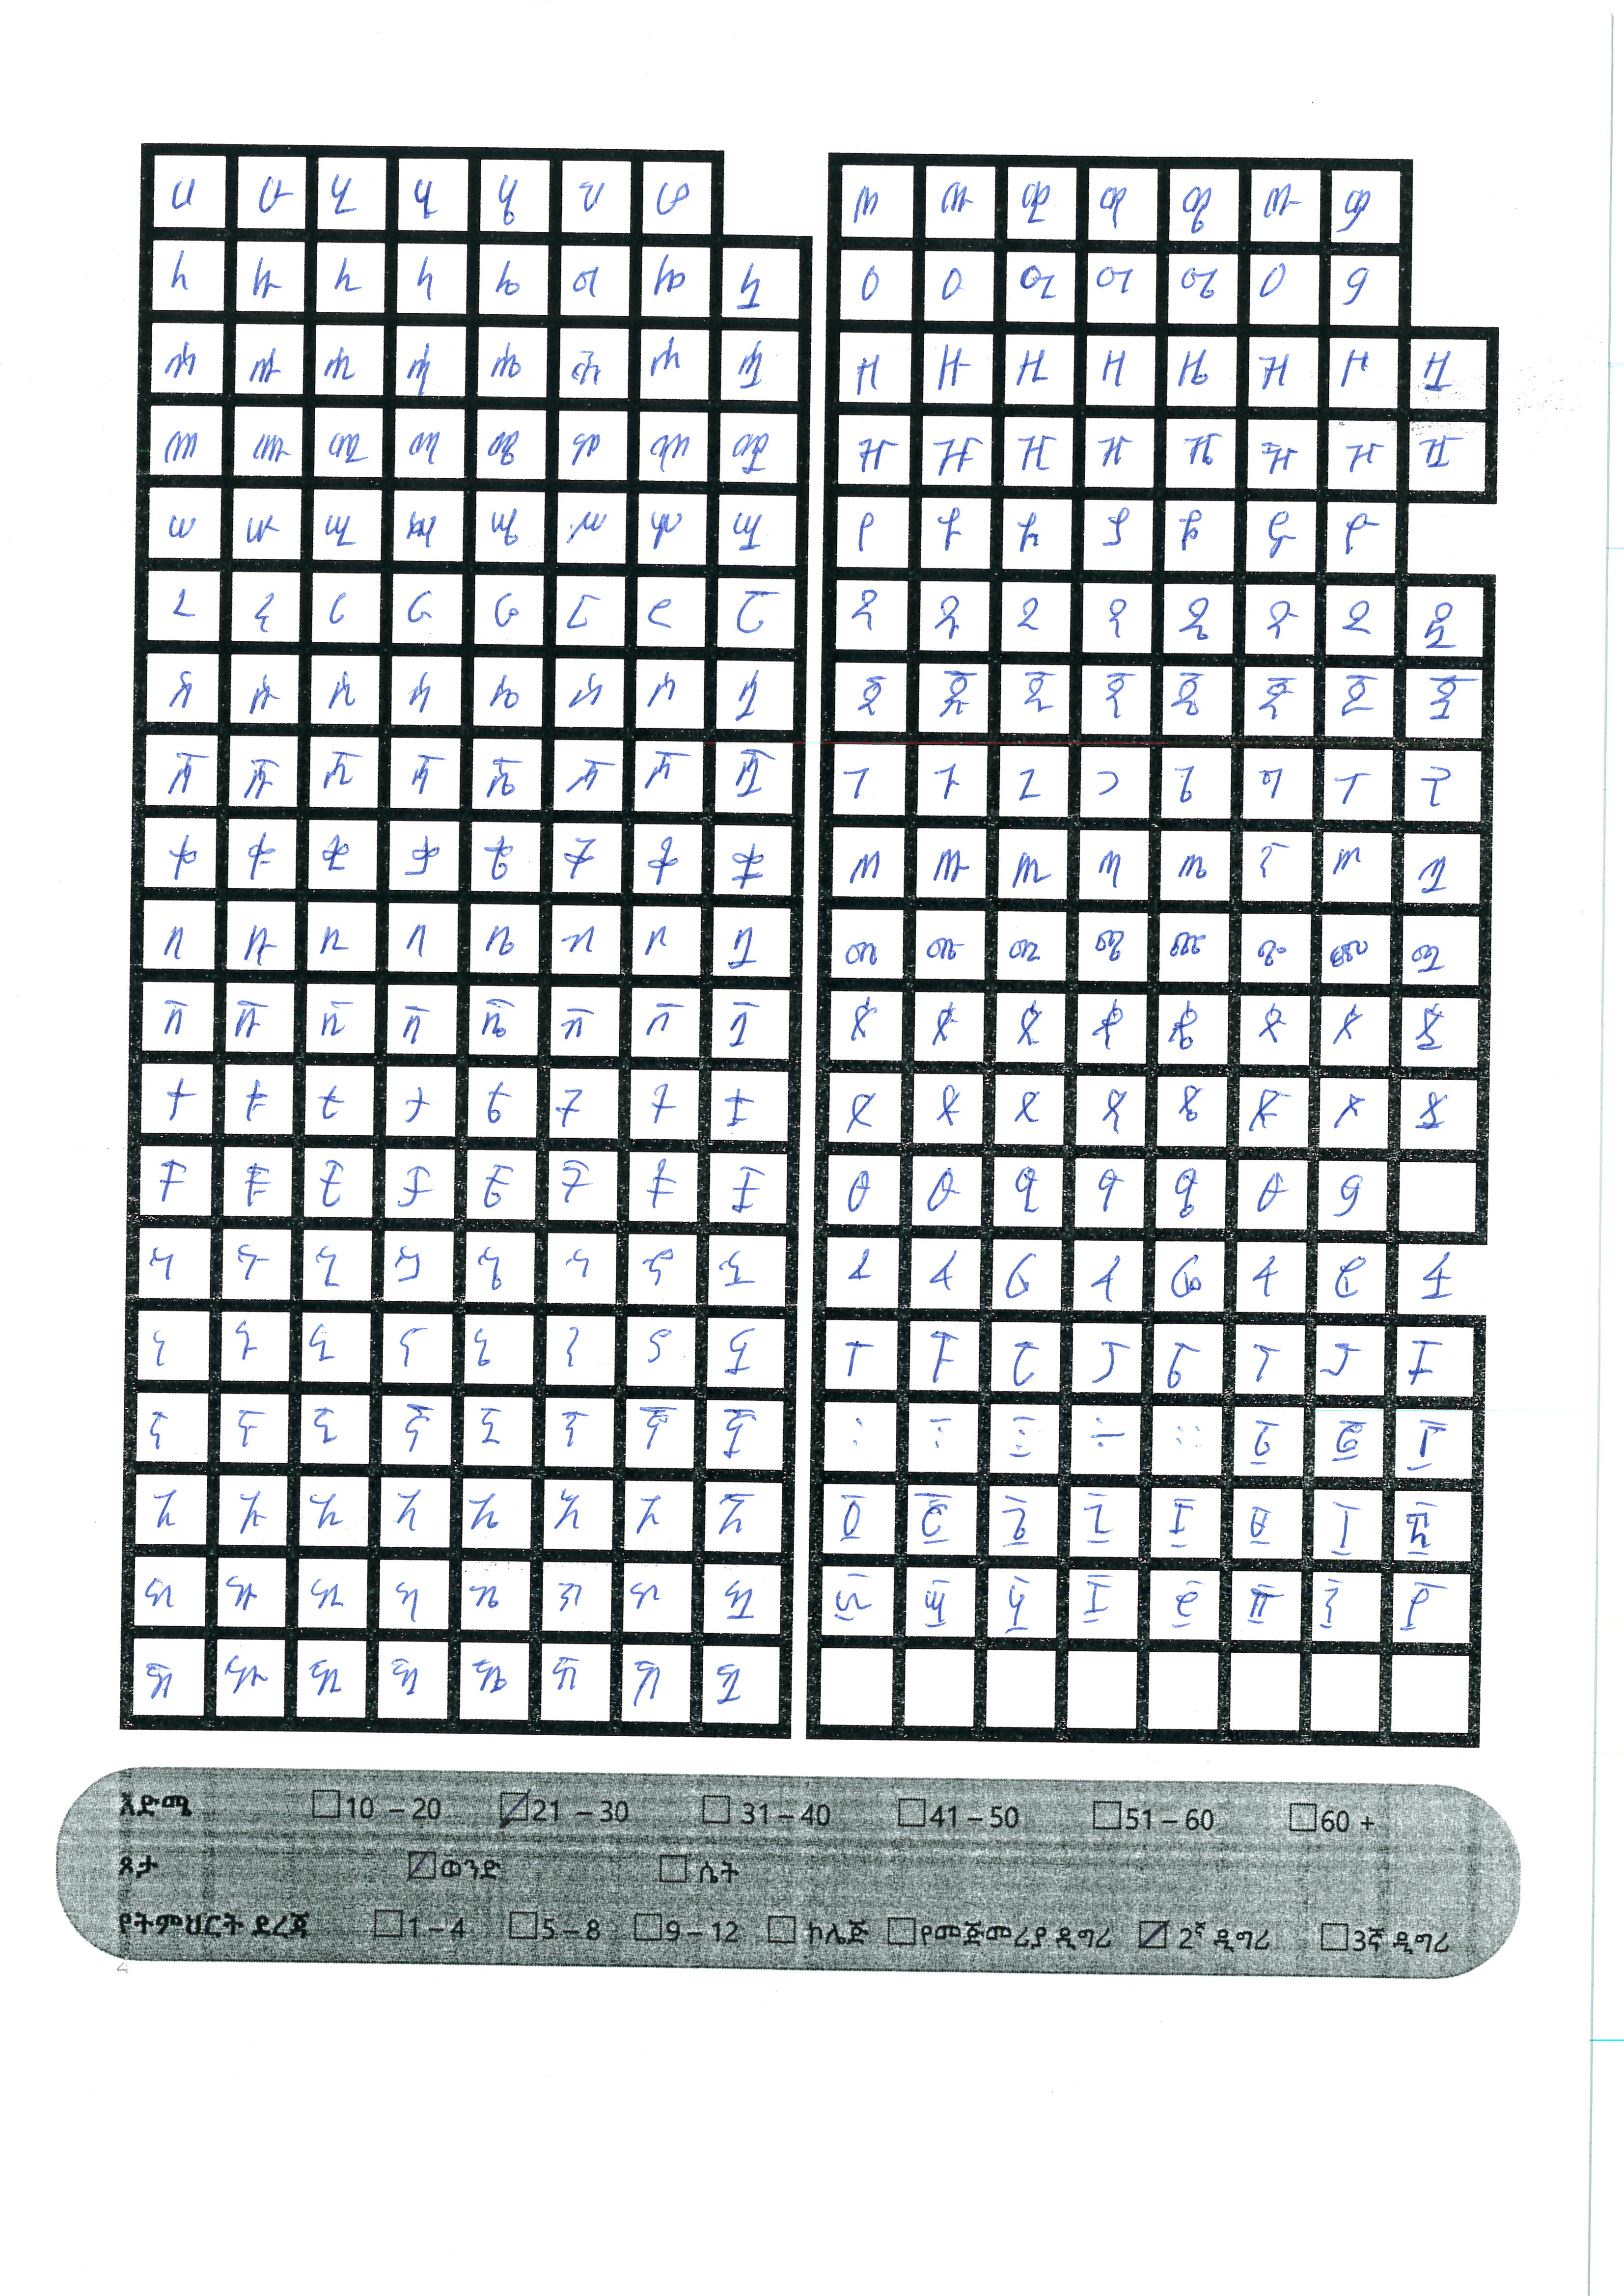 ሀ ሁ ሂ ሃ ሄ ህ ሆ
ለ ሉ ሊ ላ ሌ ል ሎ ሏ
ሐ ሑ ሒ ሓ ሔ ሕ ሖ ሗ
መ ሙ ሚ ማ ሜ ም ሞ ሟ
ሠ ሡ ሢ ሣ ሤ ሥ ሦ ሧ
ረ ሩ ሪ ራ ሬ ር ሮ ሯ
ሰ ሱ ሲ ሳ ሴ ስ ሶ ሷ
ሸ ሹ ሺ ሻ ሼ ሽ ሾ ሿ
ቀ ቁ ቂ ቃ ቄ ቅ ቆ ቋ
በ ቡ ቢ ባ ቤ ብ ቦ ቧ
ቨ ቩ ቪ ቫ ቬ ቭ ቮ ቯ
ተ ቱ ቲ ታ ቴ ት ቶ ቷ
ቸ ቹ ቺ ቻ ቼ ች ቾ ቿ
ኀ ኁ ኂ ኃ ኄ ኅ ኆ ኋ
ነ ኑ ኒ ና ኔ ን ኖ ኗ
ኘ ኙ ኚ ኛ ኜ ኝ ኞ ኟ
አ ኡ ኢ ኣ ኤ እ ኦ ኧ
ከ ኩ ኪ ካ ኬ ክ ኮ ኳ
ኸ ኹ ኺ ኻ ኼ ኽ ኾ ዃ
ወ ዉ ዊ ዋ ዌ ው ዎ
ዐ ዑ ዒ ዓ ዔ ዕ ዖ
ዘ ዙ ዚ ዛ ዜ ዝ ዞ ዟ
ዠ ዡ ዢ ዣ ዤ ዥ ዦ ዧ
የ ዩ ዪ ያ ዬ ይ ዮ
ደ ዱ ዲ ዳ ዴ ድ ዶ ዷ
ጀ ጁ ጂ ጃ ጄ ጅ ጆ ጇ
ገ ጉ ጊ ጋ ጌ ግ ጎ ጓ
ጠ ጡ ጢ ጣ ጤ ጥ ጦ ጧ
ጨ ጩ ጪ ጫ ጬ ጭ ጮ ጯ
ጰ ጱ ጲ ጳ ጴ ጵ ጶ ጷ
ጸ ጹ ጺ ጻ ጼ ጽ ጾ ጿ
ፀ ፁ ፂ ፃ ፄ ፅ ፆ
ፈ ፉ ፊ ፋ ፌ ፍ ፎ ፏ
ፐ ፑ ፒ ፓ ፔ ፕ ፖ ፗ
፡ ፤ ፩ ፪ ፫
፬ ፭ ፮ ፯ ፰ ፱ ፲ ፳
፴ ፵ ፶ ፷ ፸ ፹ ፺ ፻
እድሜ 10 – 20 21 – 30 31 – 40 41 – 50 51 – 60 60 +
ጾታ ወንድ ሴት
የትምህርት ደረጃ 1 – 4 5 – 8 9 – 12 ኮሌጅ የመጀመሪያ ዲግሪ 2ኛ ዲግሪ 3ኛ ዲግሪ